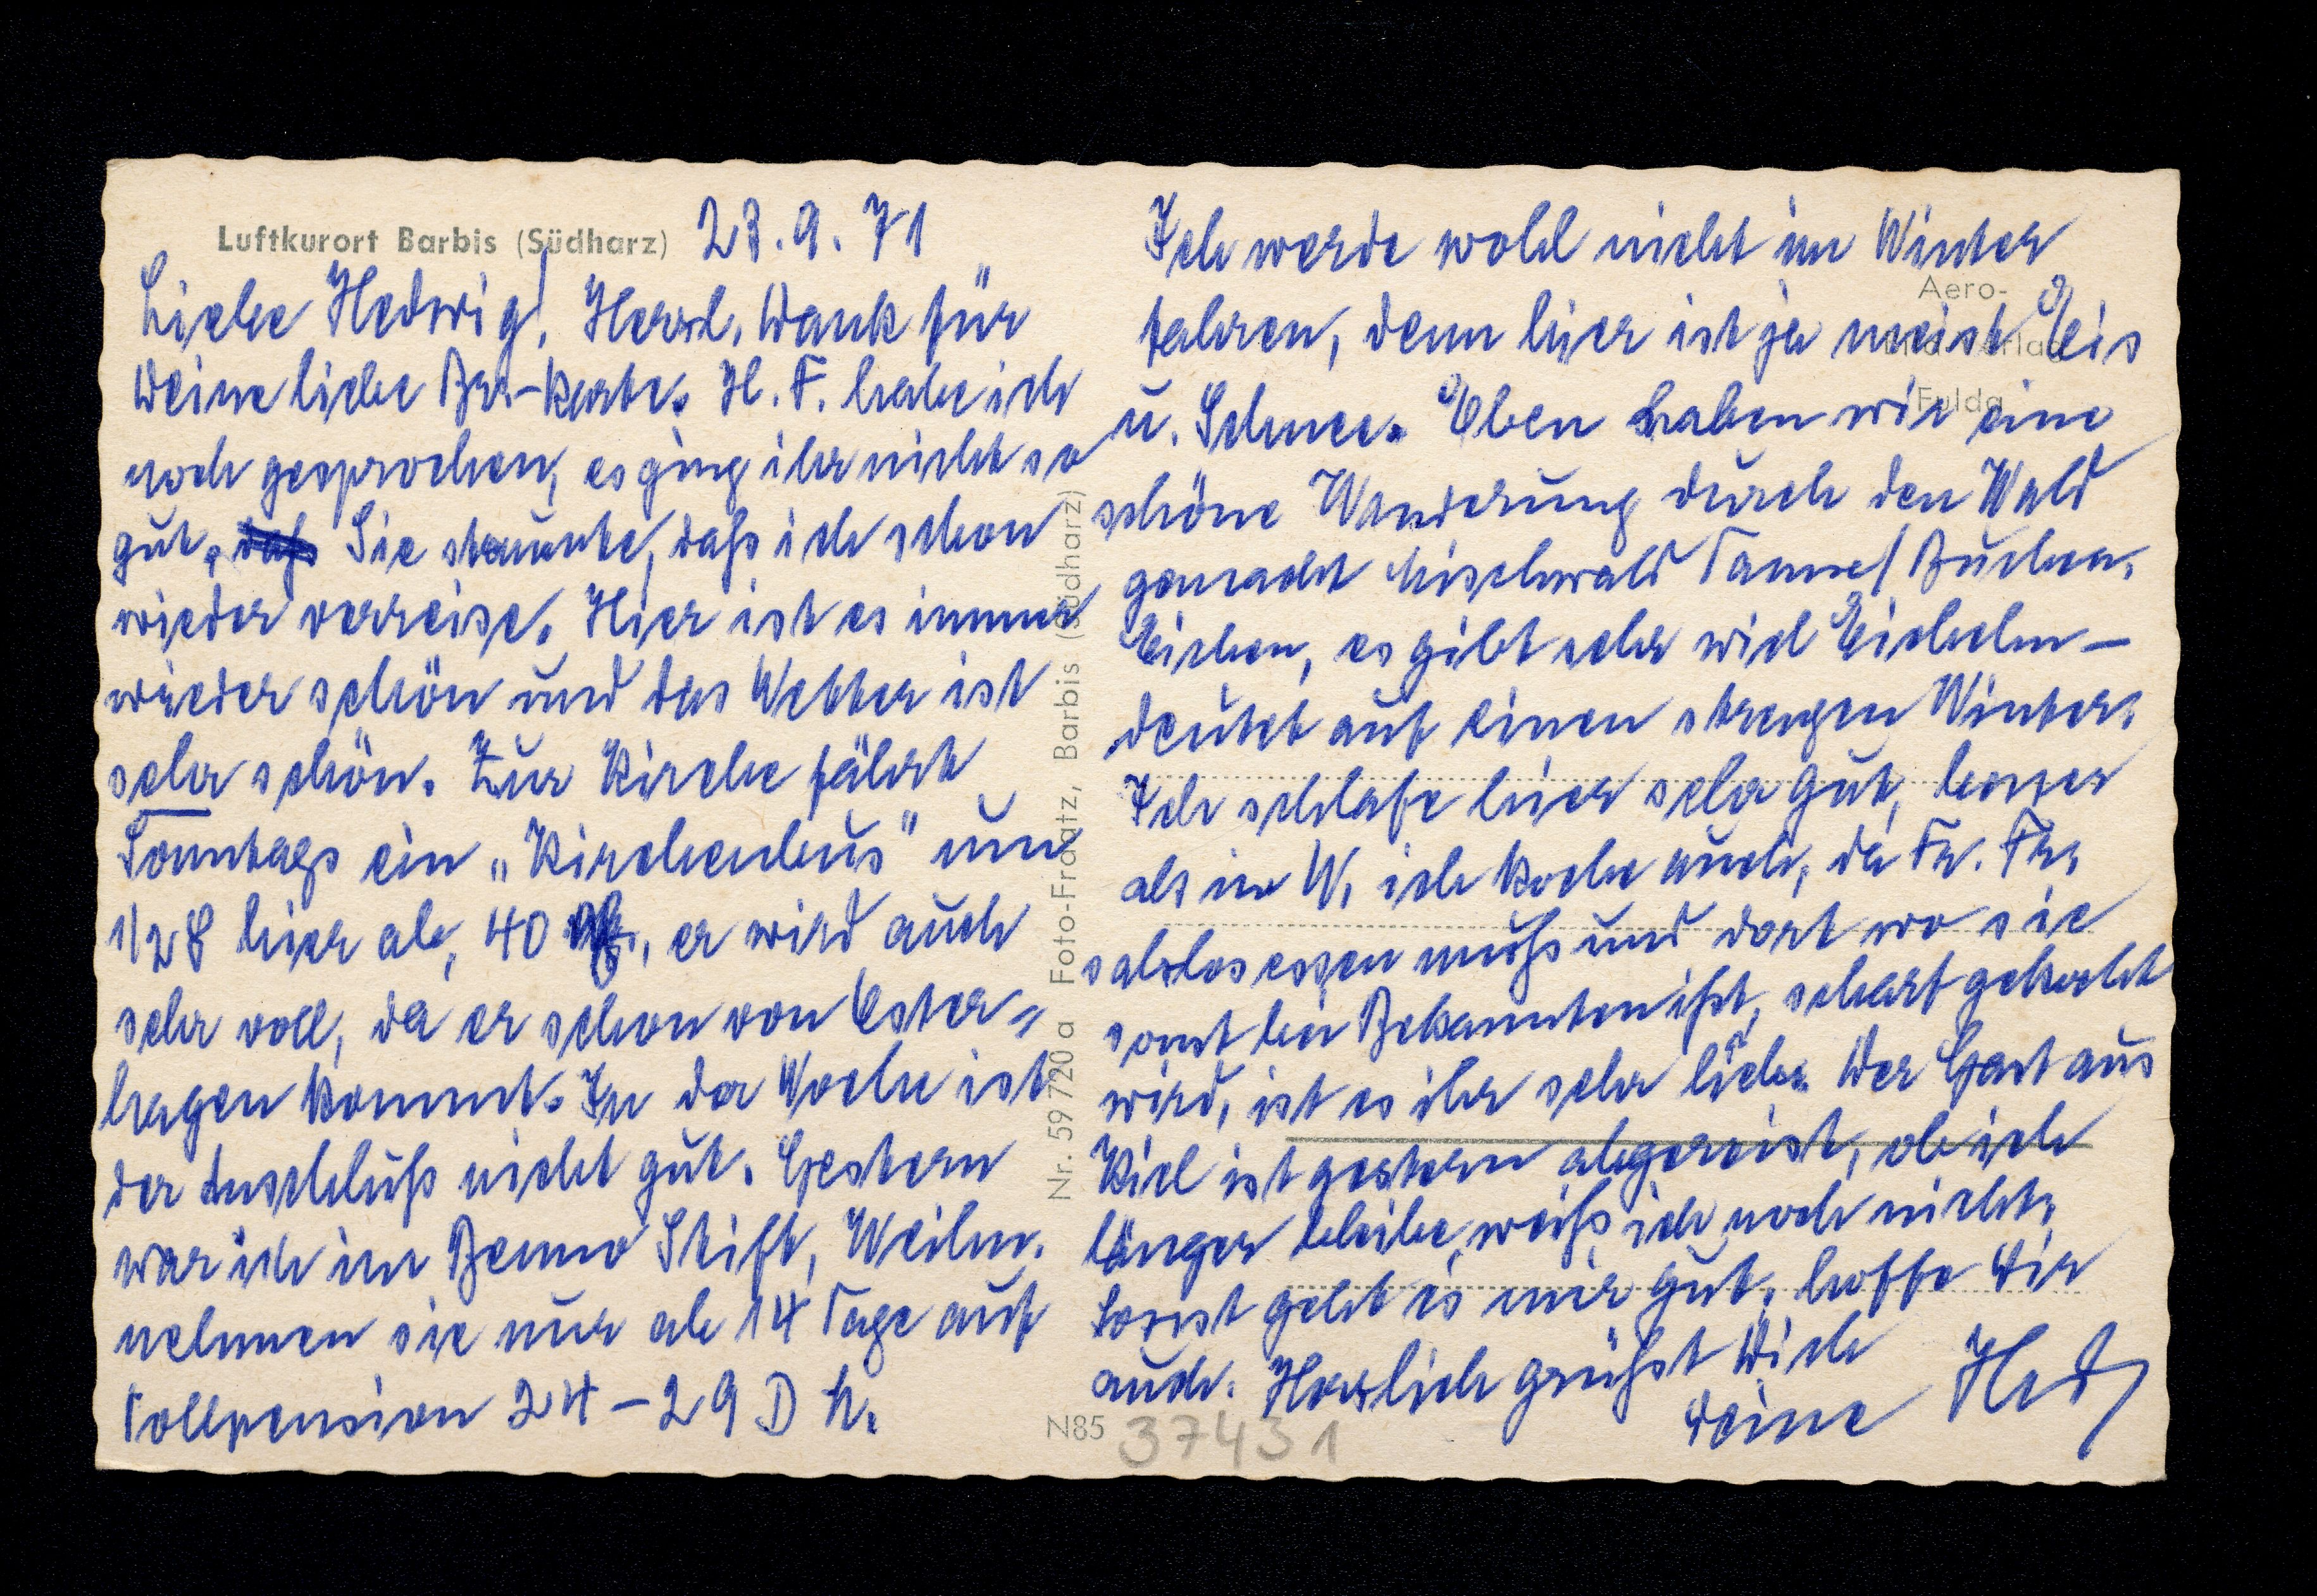 Luftkurort Barbis (Südharz)
28.9.71
Liebe Hedwig! Herzl. Dank für
Deine liebe Br-karte. H. F. habe ich
noch gesprochen, es ging ihr nicht so
gut. Sie staunte, daß ich schon
wieder verreise. Hier ist es immer
wieder schön und das Wetter ist
sehr schön. Zur Kirche fährt
Sonntags ein „Kirchenbus" um
1/28 hier ab, 40 , er wird auch
sehr voll, da er schon von Oster=
hagen kommt. In der Woche ist
der Anschluß nicht gut. Gestern
war ich im Benno Stift, Weihn.
nehmen sie nur ab 14 Tage auf
Vollpension 24 – 29 D M.
Ich werde wohl nicht im Winter
fahren, denn hier ist ja meist Eis
u. Schnee. Eben haben wir eine
schöne Wanderung durch den Wald
gemacht Mischwald Tanne/Buchen.
Eichen, es gibt sehr viel Eicheln –
deutet auf einen strengen Winter.
Ich schlafe hier sehr gut, besser
als in W. ich koche auch, da Fr. Fr.
salzlos essen muß und dort wo sie
sonst bei Bekannten ißt, scharf gekocht
wird, ist es ihr sehr lieb. Der Gast aus
Kiel ist gestern abgereist, ob ich
länger bleibe, weiß ich noch nicht.
Sonst geht es mir gut, hoffe Dir
auch. Herzlich grüßt Dich
Deine Hed
Aero-
Bild-Verlag
Fulda
Nr. 59 720 a Foto-Fraatz, Barbis (Südharz)
N85
37431